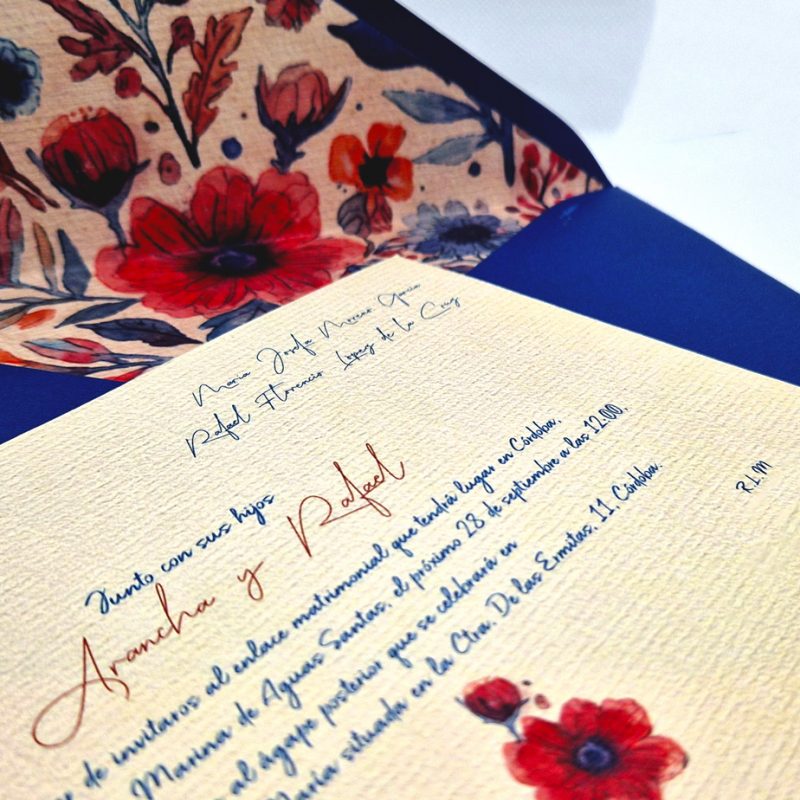 Maria Josefa Moreno Garcia
Rafael Florencio Lopez de la Cruz
Junto con sus hijos
Arancha y Rafael
de invitaros al enlace matrimonial que tendrá lugar en Córdoba,
Marina de Aguas Santas, el próximo 28 de septiembre a las 12:00,
al ágape posterior que se celebrará en
María situada en la Ctra. De las Ermitas, 11, Córdoba.
R.L.M